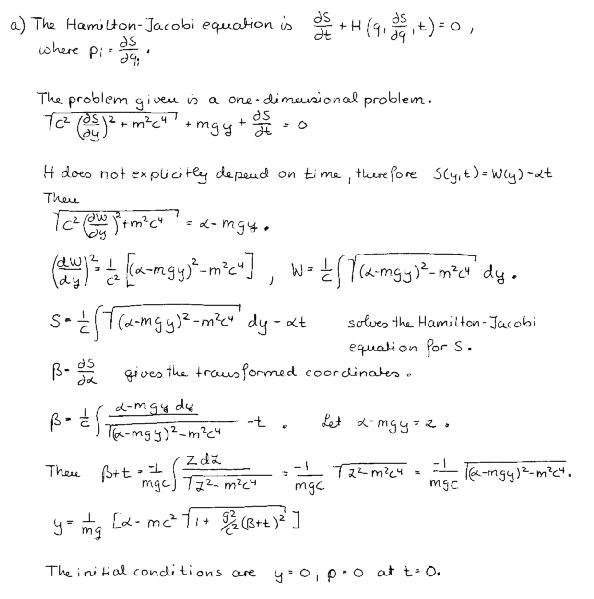 a) The Hamilton-Jacobi equation is ∂S/∂t + H(q, ∂S/∂q, t) = 0 ,
where pᵢ = ∂S/∂qᵢ .
The problem given is a one-dimensional problem.
√(c² (∂S/∂y)² + m²c⁴) + mgy + ∂S/∂t = 0
H does not explicitly depend on time, therefore S(y,t) = W(y) - αt
Then
√(c² (∂W/∂y)² + m²c⁴) = α - mgy .
(dW/dy)² = 1/c² [(α-mgy)² - m²c⁴] , W = 1/c ∫ √((α-mgy)² - m²c⁴) dy .
S = 1/c ∫ √((α-mgy)² - m²c⁴) dy - αt solves the Hamilton-Jacobi
equation for S.
β = ∂S/∂α gives the transformed coordinates .
β = 1/c ∫ α-mgy dy / √((α-mgy)² - m²c⁴) - t . Let α-mgy = z .
Then β+t = -1/mgc ∫ z dz / √(z² - m²c⁴) = -1/mgc √(z² - m²c⁴) = -1/mgc √((α-mgy)² - m²c⁴) .
y = 1/mg [α - mc² √(1 + g²/c² (β+t)²) ]
The initial conditions are y = 0, p = 0 at t = 0.